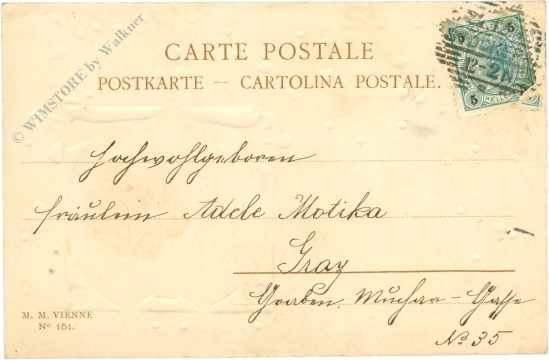 CARTE POSTALE
POSTKARTE – CARTOLINA POSTALE.
© WIMSTORE by Walkner
5 5
12-2N
5
HELLER
Hochwohlgeboren
Fräulein Adele Motika
Graz
Graben, Muchar-Gasse
No 35
M. M. VIENNE
No 151.